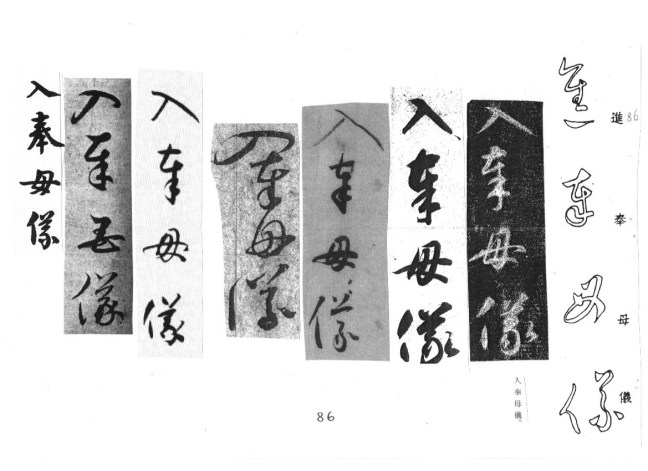 進 86
奉
母
儀
進奉母儀
入奉母儀。
入奉母儀
入奉母儀
入奉母儀
入奉母儀
入奉母儀
入奉母儀
入奉母儀
86